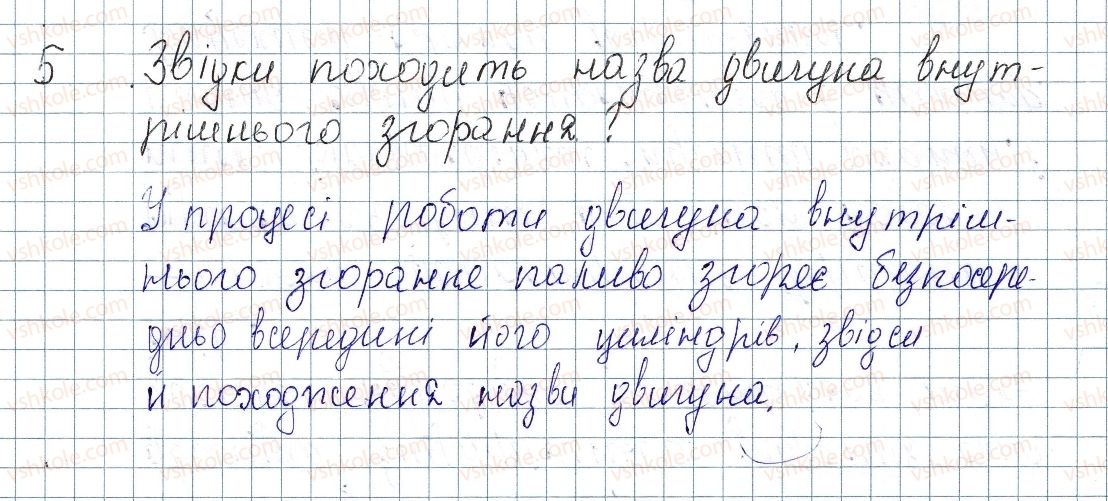 5. Звідки походить назва двигуна внут-
рішнього згорання?
У процесі роботи двигуна внутріш-
нього згорання паливо згоряє безпосере-
дньо всередині його циліндрів, звідси
й походження назви двигуна.